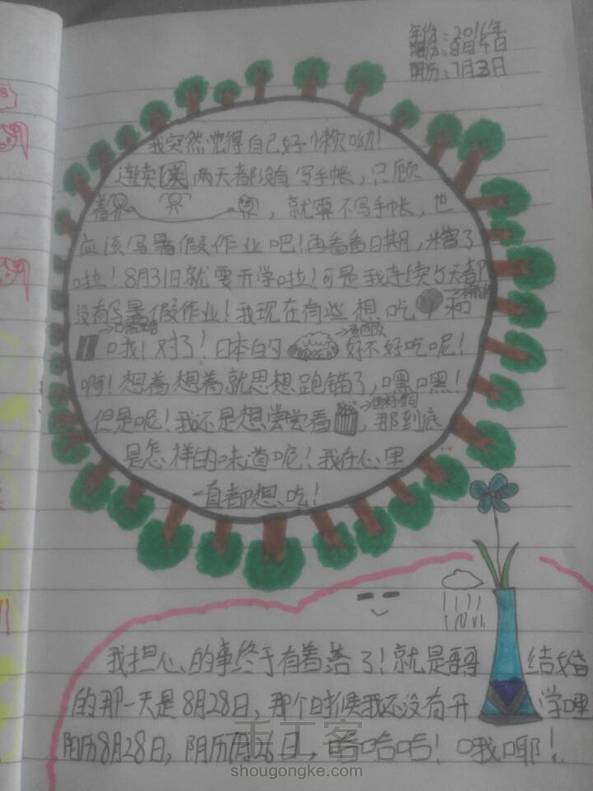 年份：2016年
阳历：8月4日
阴历：7月3日
我突然觉得自己好懒呦！
连续 两天都没有写手帐，只顾
着 ，就算不写手帐，也
应该写暑假作业吧！再看看日期，
啦！8月31日就要开学啦！可是我连续5天都
没有写暑假作业！我现在有些想吃 和
哦！对了！日本的 好不好吃呢！
啊！想着想着就思想跑错了，嘿嘿！
但是呢！我还是想尝尝看 ，那到底
是怎样的味道呢！我在心里
一直都想吃！
我担心的事终于有着落了！就是 结婚
的那一天是8月28日，那个时候我还没有开 学哩
阳历8月28日，阴历7月26日， 哈哈！哦耶！
手工客
shougongke.com